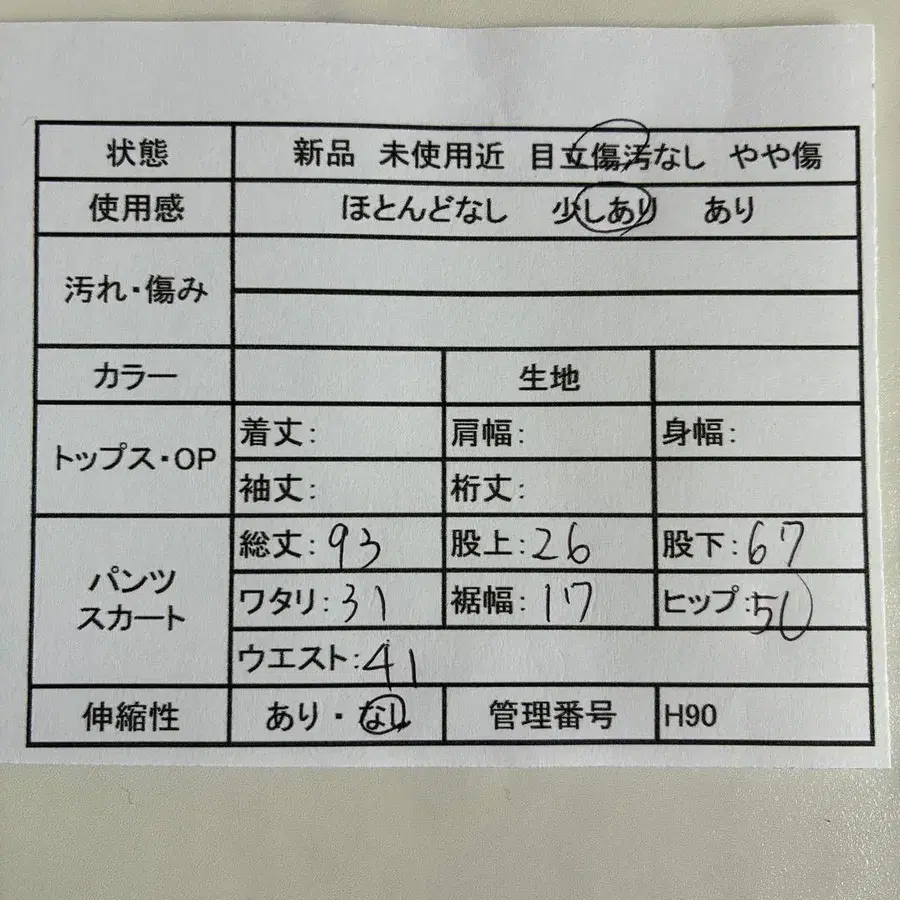 状態 新品 未使用近 目立傷汚なし やや傷
使用感 ほとんどなし 少しあり あり
汚れ・傷み
カラー 生地
トップス・OP
着丈: 肩幅: 身幅:
袖丈: 裄丈:
パンツ
スカート
総丈: 93 股上: 26 股下: 67
ワタリ: 31 裾幅: 17 ヒップ: 50
ウエスト: 41
伸縮性 あり・なし 管理番号 H90